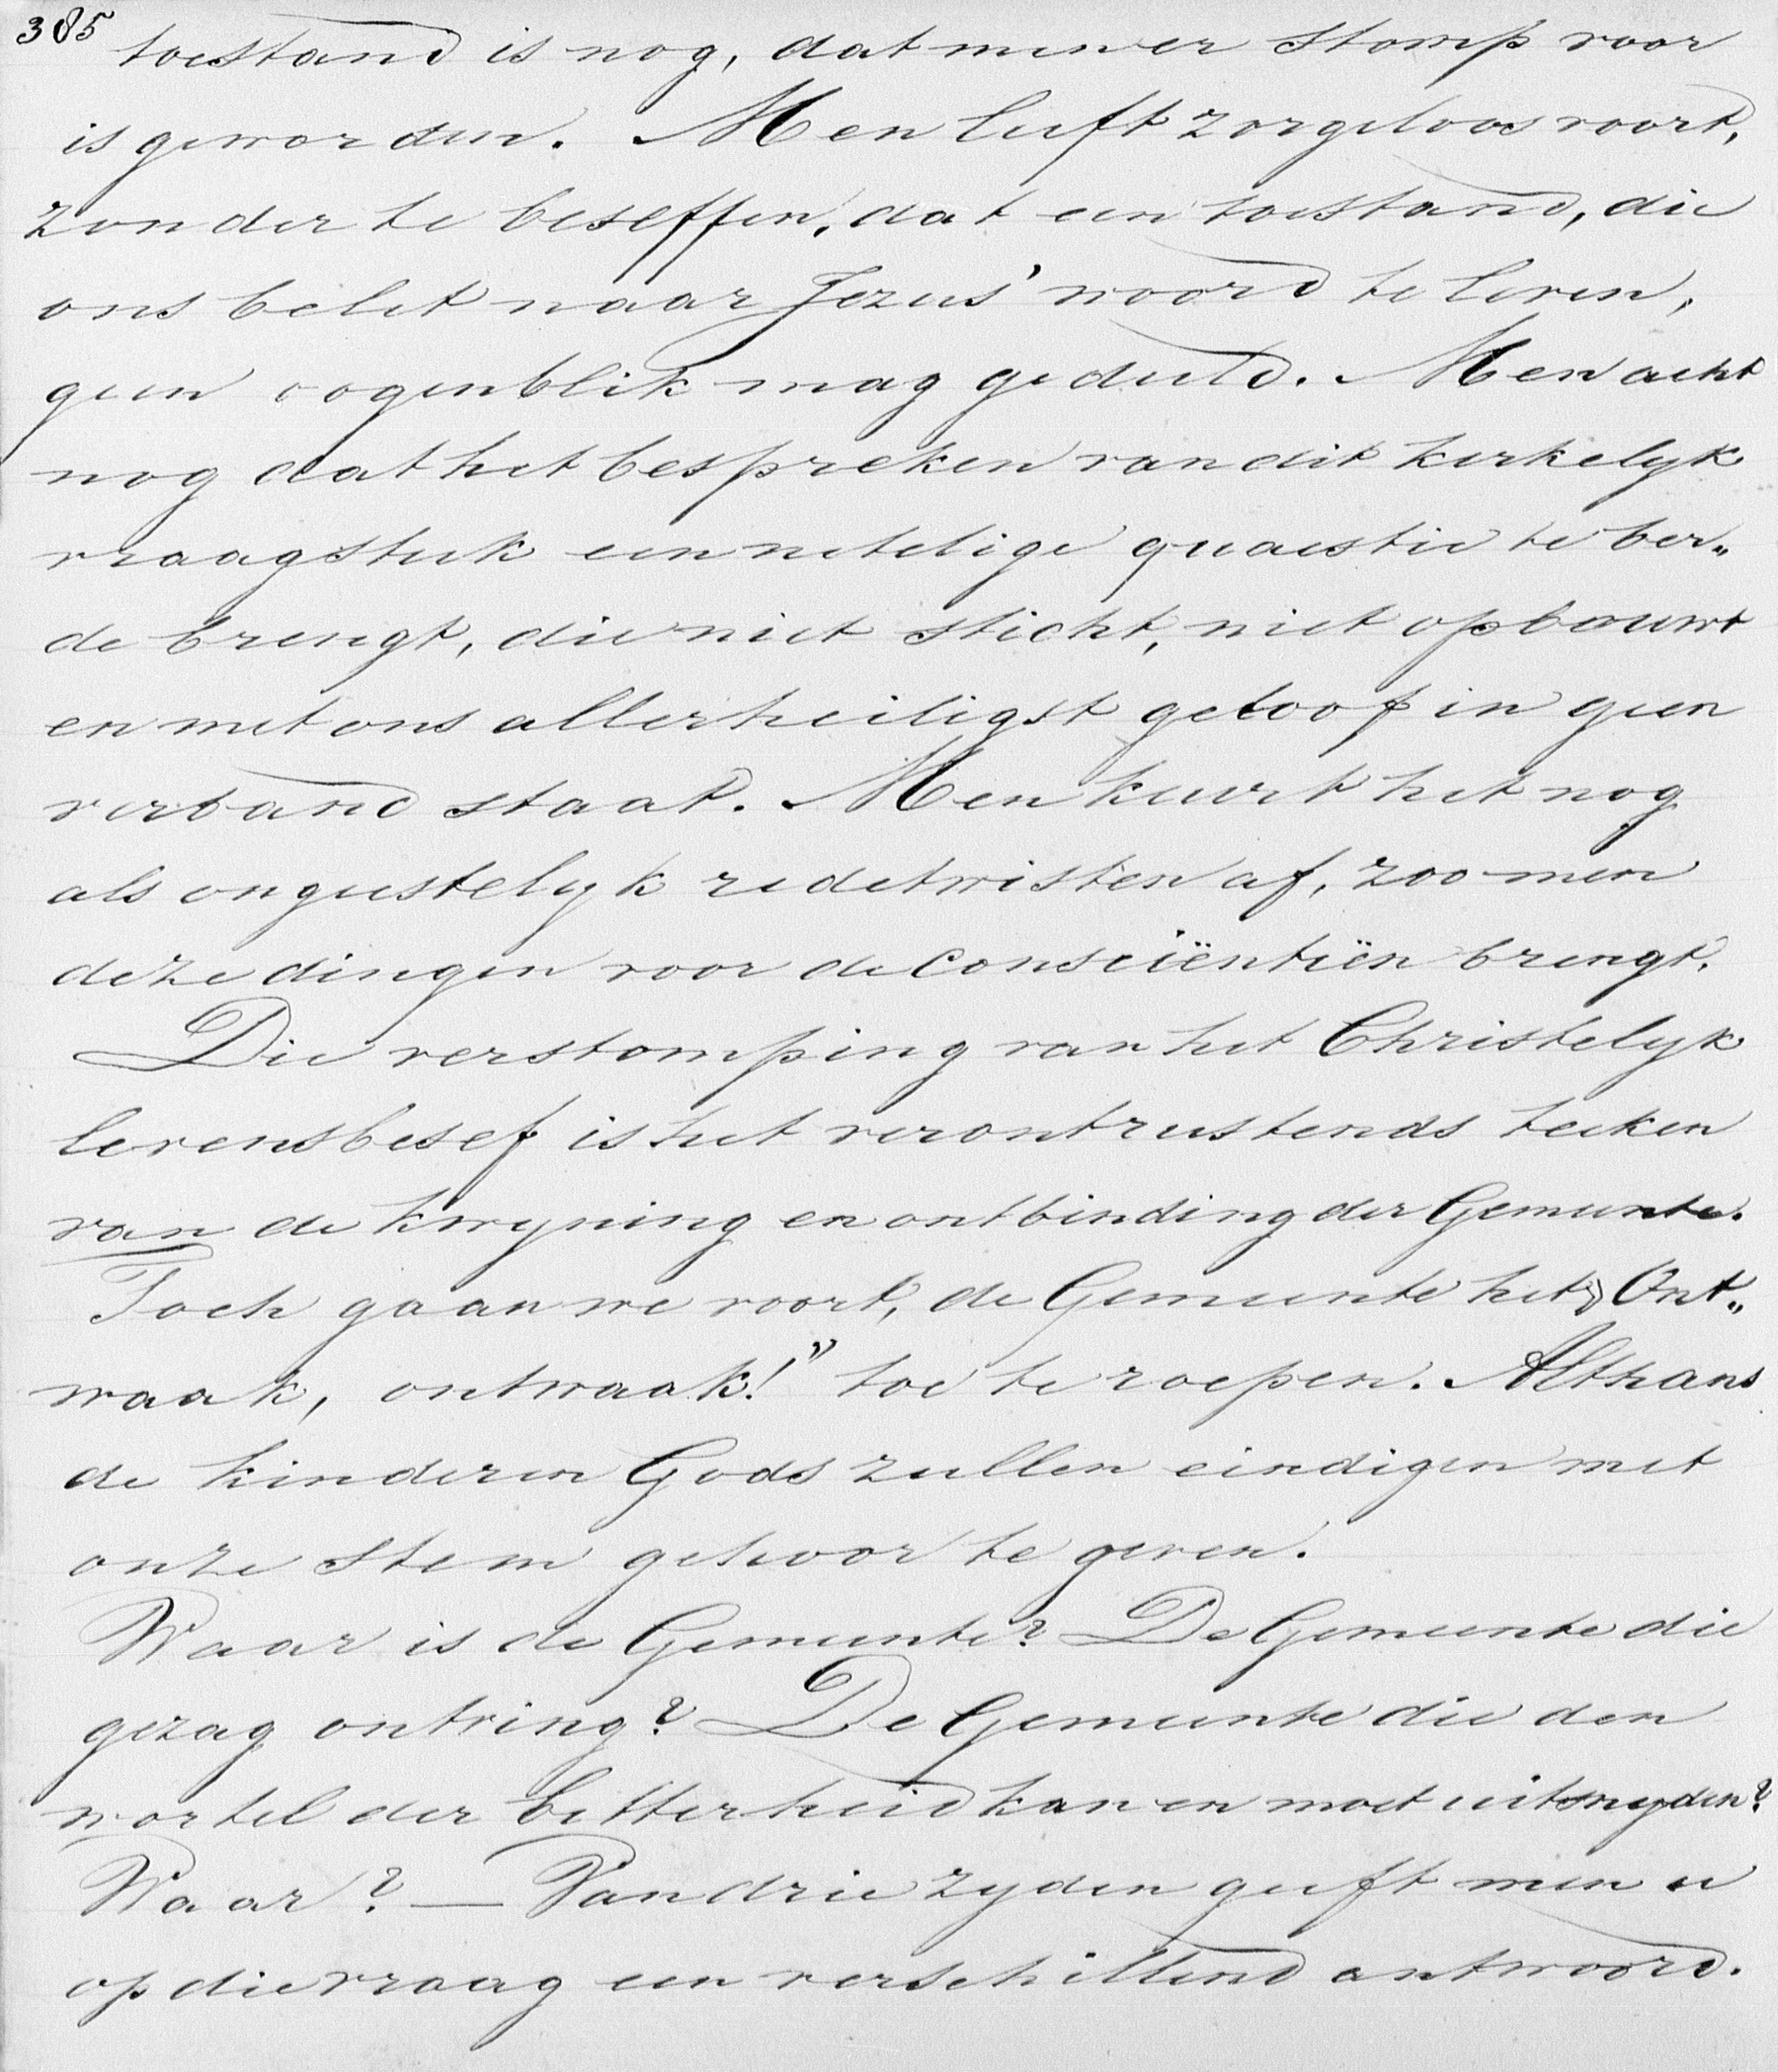 385
toestand is nog, dat men er stomp voor
is geworden. Men leeft zorgeloos voort,
zonder te beseffen, dat een toestand, die
ons belet naar Jezus' woord te leven,
geen oogenblik mag geduld. Men acht
nog dat het bespreken van dit kerkelyk
vraagstuk een netelige quaestie te ber„
de brengt, die niet sticht, niet opbouwt
en met ons allerheiligst geloof in geen
verband staat. Men keurt het nog
als ongeestelyk redetwisten af, zoo men
deze dingen voor de consciëntiën brengt.
Die verstomping van het Christelyk
levensbesef is het verontrustends teeken
van de kwyning en ontbinding der Gemeente.
Toch gaan we voort, de Gemeente het „Ont„
waak, ontwaak!” toe te roepen. Althans
de kinderen Gods zullen eindigen met
onze stem gehoor te geven.
Waar is de Gemeente? De Gemeente die
gezag ontving? De Gemeente die den
wortel der bitterheid kan en moet uitsnyden?
Waar? — Van drie zyden geeft men u
op die vraag een verschillend antwoord.